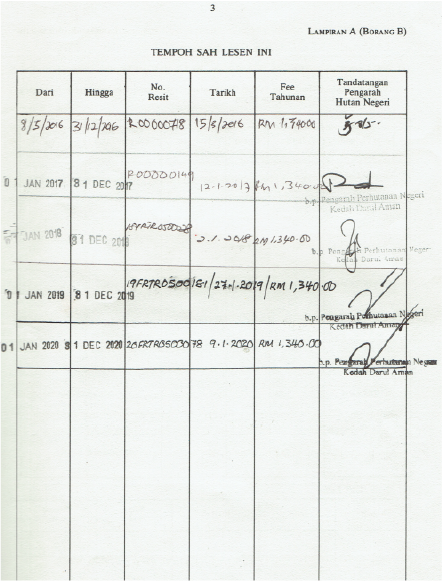 3
LAMPIRAN A (BORANG B)
TEMPOH SAH LESEN INI
Dari Hingga No. Resit Tarikh Fee Tahunan Tandatangan Pengarah Hutan Negeri
8/5/2016 31/12/2016 R00000718 15/5/2016
01 JAN 2017 31 DEC 2017 R00000149 12.1.2017 RM 1,340.00
b.p. Pengarah Perhutanan Negeri
Kedah Darul Aman
JAN 2018 31 DEC 2018 2.1.2018 RM 1,340.00
b.p. Pengarah Perhutanan Negeri
Kedah Darul Aman
01 JAN 2019 31 DEC 2019 19FRTR0500151 /27.1.2019/ RM 1,340.00
b.p. Pengarah Perhutanan Negeri
Kedah Darul Aman
01 JAN 2020 31 DEC 2020 20FRTR0500078 9.1.2020 RM 1,340.00
b.p. Pengarah Perhutanan Negeri
Kedah Darul Aman